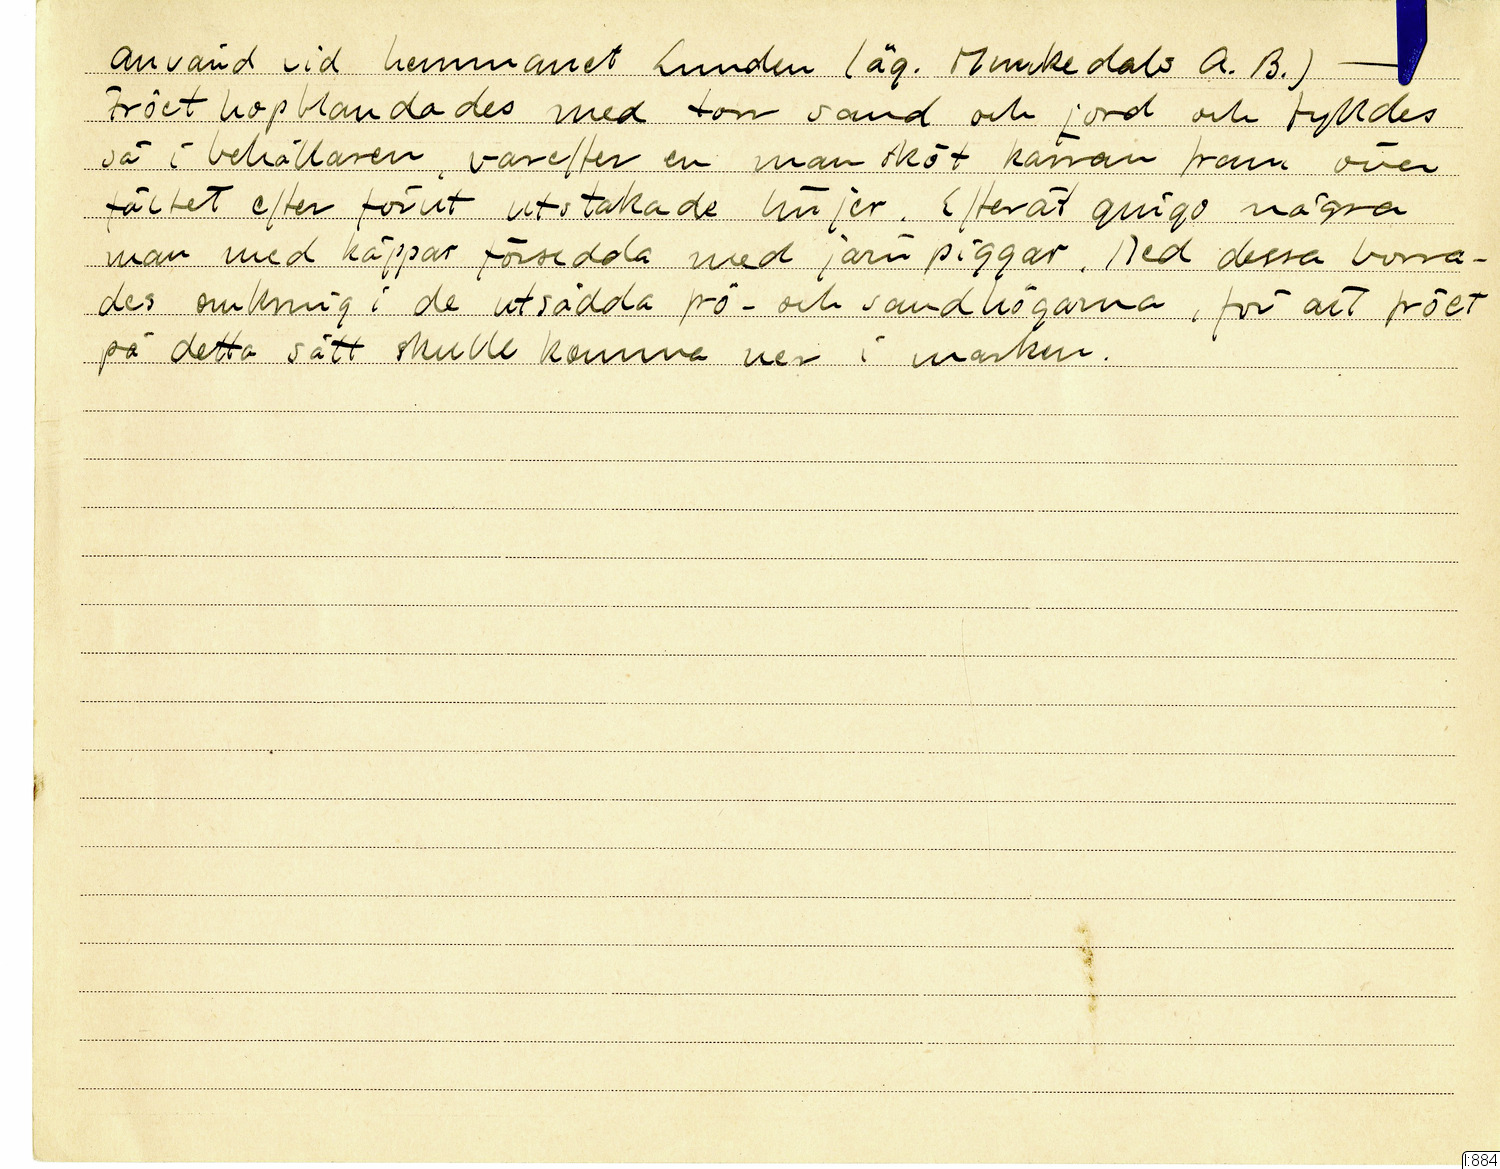 använd vid hemmanet Lunden (äg. Munkedals A. B.) —
Fröet hopblandades med torr sand och jord och fylldes
så i behållaren, varefter en man sköt kärran fram över
fältet efter förut utstakade linjer. Efteråt gingo några
man med käppar försedda med järnpiggar. Med dessa borra-
des omkring i de utsådda frö- och sandhögarna, för att fröet
på detta sätt skulle komma ner i marken.
1:884